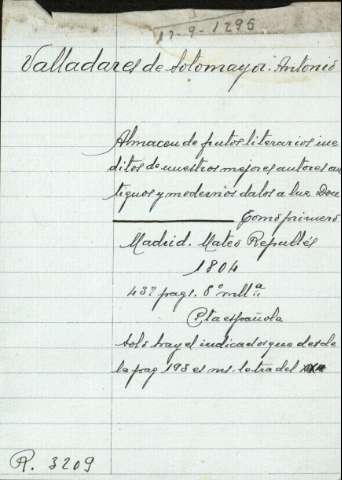 17-9-1295
Valladares de Sotomayor. Antonio
Almacen de frutos literarios ine
ditos de nuestros mejores autores an
tiguos y modernos dalos a luz Don
Tomo primero
Madrid. Mateo Repullés
1804
437 pags. 8º mllª
Pta española
Solo hay el indicado que desde
la pag 193 es ms. letra del
R. 3209